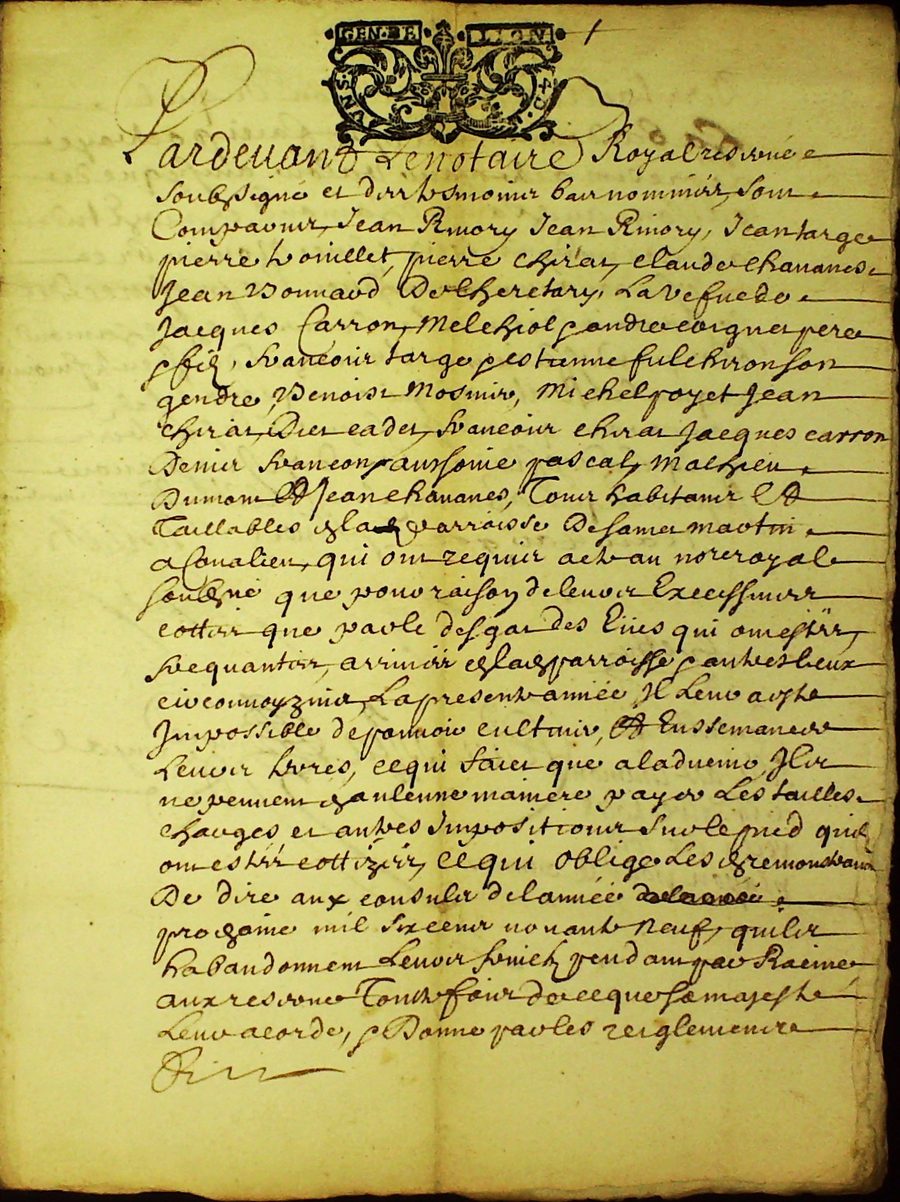 GEN·DE LION
1
Pardevant Le notaire Royal reservé
soubsigné et des tesmoins bas nommés, sont
Comparus, Jean Rimory Jean Rimory, Jean targe
pierre pierre Chirat, claude Chavanes
Jean Bonnavd De lheretary, La vefve de
Jacques Carron, Melchiol coignet pere
& fils, francois targe & estienne fulchiron son
gendre, Benoist Mosnir, Michel poyet Jean
Chirat, Dit cadet, francois chirat Jacques carron
Denis francon, pascal, Mathieu
Dumont Et Jean chavanes, Tous habitants Et
Taillables de la parroisse De sainct martin
a Coualieu, qui ont requis acte au nore royal
soubsné que pour raison de leurs Excessives
cottes que par le des gens des qui ont estés
frequantes, arrivées en la parroisse & autres lieux
circonvoyzins, La presente année, Il leur a esté
Impossible de pouvoir cultiver, Et Enssemancer
Leurs terres, ce qui faict que a ladvenir, Ils
ne peuvent en aulcune maniere payer Les tailles
charges et autres Impositions sur le pied quils
ont estés cottizés, ce qui oblige Les remonstrants
De dire aux consuls de lannée
prochaine mil six cent nonante neuf, quils
habandonnent Leurs fruictz pendants par Racine
aux reserve Toutefois de ce que sa majesté
Leur acorde, & Donne par les reiglements